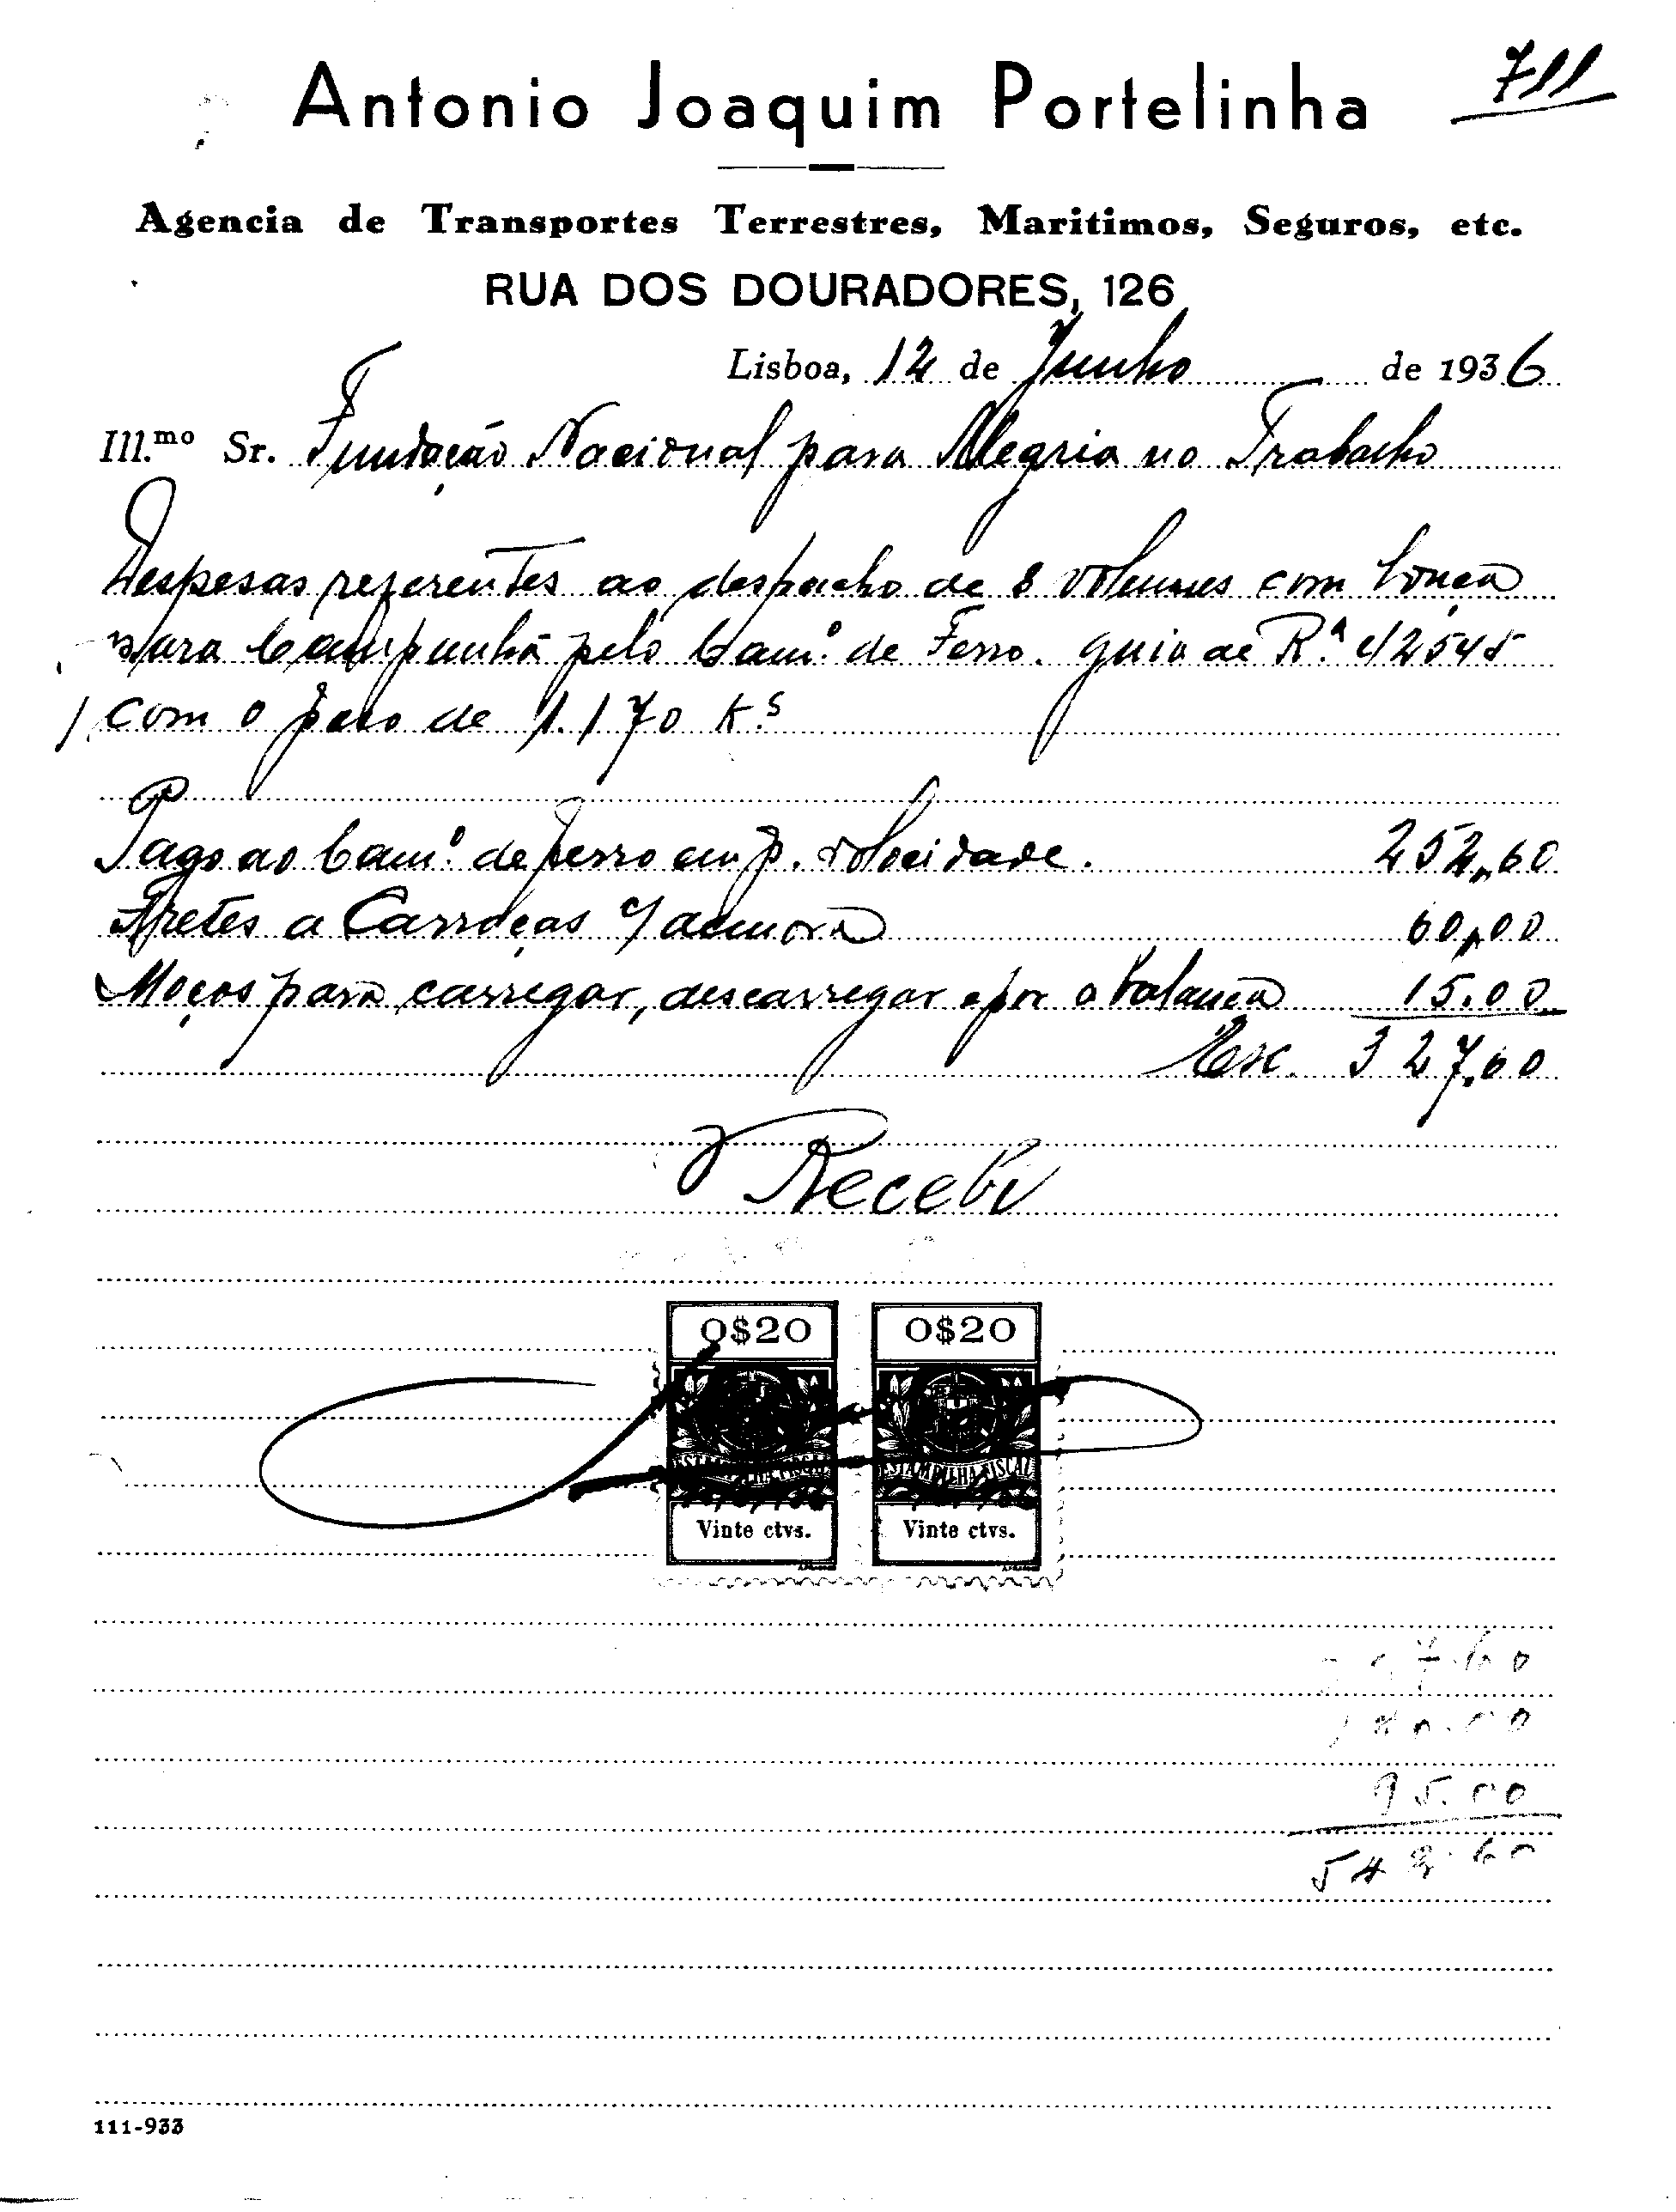 711
Antonio Joaquim Portelinha
Agencia de Transportes Terrestres, Maritimos, Seguros, etc.
RUA DOS DOURADORES, 126
Lisboa, 12 de Junho de 1936
Ill.mo Sr. Fundação Nacional para Alegria no Trabalho
Despesas referentes ao despacho de 8 volumes com louça
para Campanhã pelo Cam.º de Ferro. guia de R.ª 42545
com o peso de 1.170 K.s
Pago ao Cam.º de ferro em p. velocidade. 252,60
Fretes a Carroças c/ demora 60,00
Moços para carregar, descarregar e por a balança 15.00
Esc. 327,60
Recebi
0$20 0$20
ESTAMPILHA FISCAL
Vinte ctvs. Vinte ctvs.
95.00
111-933